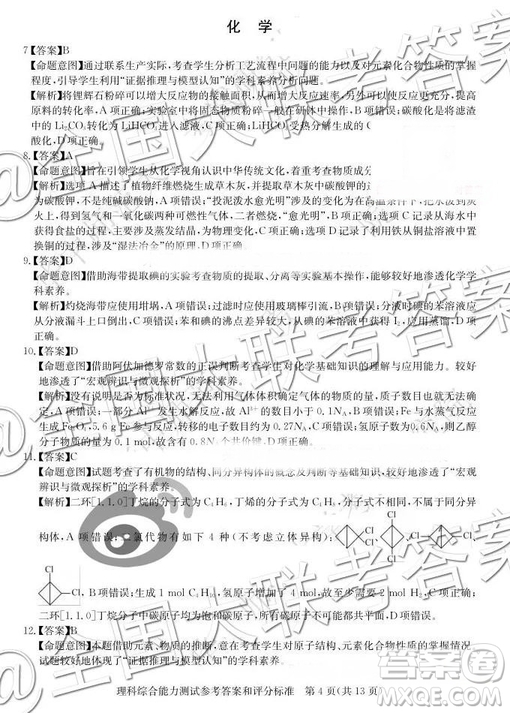 化 学
7.【答案】B
【命题意图】通过联系生产实际,考查学生分析工艺流程中问题的能力以及对元素化合物性质的掌握
程度,引导学生利用“证据推理与模型认知”的学科素养分析问题。
【解析】将锂辉石粉碎可以增大反应物的接触面积,从而增大反应
原料的转化率,A项正确;实验室中将固态物质粉碎一般在研钵中
中的Li₂CO₃转化为LiHCO₃进入滤液,C项正确;LiHCO₃受热分解生成的C
酸化,D项正确。
8.【答案】A
【命题意图】旨在引领学生从化学视角认识中华传统文化,着重考查物质成分
【解析】选项A描述了植物纤维燃烧生成草木灰,并提取草木灰中碳酸钾的
为碳酸钾,不是纯碱碳酸钠,A项错误;“投泥泼水愈光明”涉及的变化为在高温条件下,把水泼到炭
火上,得到氢气和一氧化碳两种可燃性气体,二者燃烧,“愈光明”,B项正确;选项C记录从海水中
获得食盐的过程,主要涉及蒸发结晶,为物理变化,C项正确;选项D记录了利用铁从铜盐溶液中置
换铜的过程,涉及“湿法冶金”的原理,D项正确。
9.【答案】D
【命题意图】借助海带提取碘的实验考查物质的提取、分离等实验基本操作,能够较好地渗透化学学
科素养。
【解析】灼烧海带应使用坩埚,A项错误;过滤时应使用玻璃棒引流,B项错误;分液时碘的苯溶液应
从分液漏斗上口倒出,C项错误;苯和碘的沸点差异较大,从碘的苯溶液中分离碘,应使用蒸馏,D项
正确。
10.【答案】D
【命题意图】借助阿伏加德罗常数的正误判断考查学生对化学基础知识的理解与应用能力。较好
地渗透了“宏观辨识与微观探析”的学科素养。
【解析】没有说明是否为标准状况,无法利用气体体积确定气体物质的量,无法确定气体体积大小,
A项错误;一部分Al³⁺发生水解反应,故Al³⁺的数目小于0.1Nₐ,B项错误;Fe与水蒸气反应
生成Fe₃O₄,5.6 g Fe参与反应,转移的电子数和得到的氢气的分子数不对应,C项错误
子物质的量为0.1 mol,故含有0.8Nₐ个共价键,D项正确。
11.【答案】C
【命题意图】试题考查了有机物的结构式、同分异构体的概念及判断等基础知识,较好地渗透了“宏观
辨识与微观探析”的学科素养。
【解析】二环[1,1,0]丁烷的分子式为C₄H₆,丁烯的分子式为C₄H₈,分子式不相同,不属于同分异
构体,A项错误;二氯代物有如下4种(不考虑立体异构):
Cl Cl Cl Cl Cl Cl
Cl Cl ,B项错误;生成1 mol C₄H₁₀,氢原子增加了4 mol,故至少需要2 mol H₂,C项正确;
二环[1,1,0]丁烷分子中碳原子均为饱和碳原子,故所有碳原子不可能处于同一平面,D项错误。
12.【答案】B
【命题意图】本题借助元素、物质的推断,意在考查学生对原子结构、元素化合物性质的掌握情况
试题较好地体现了“证据推理与模型认知”的学科素养。
理科综合能力测试参考答案和评分标准 第4页(共13页)